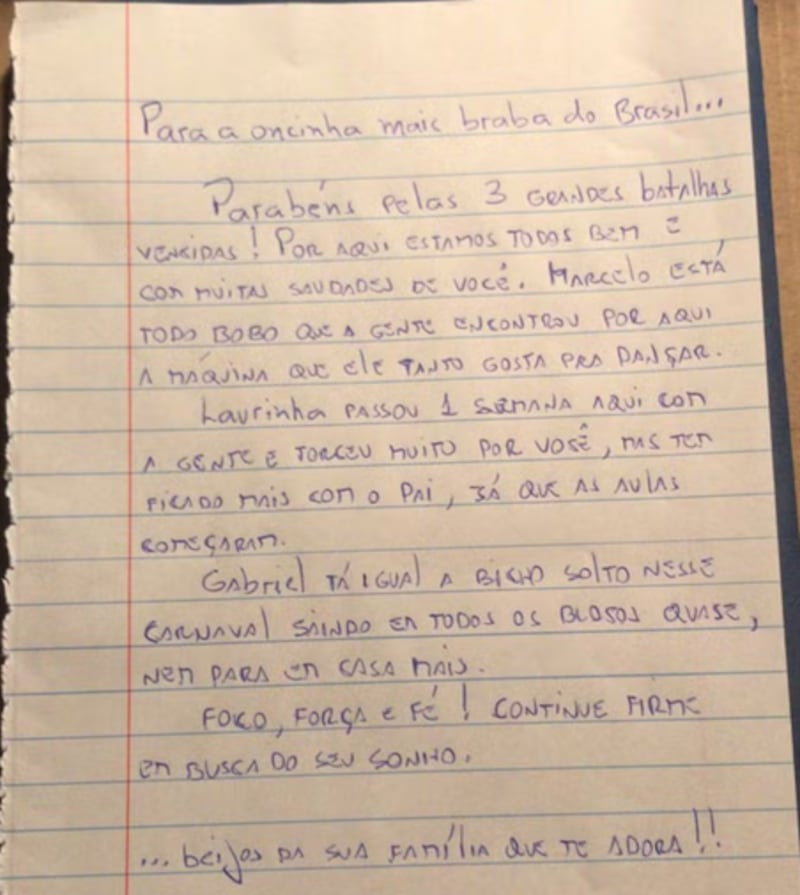 Para a oncinha mais braba do Brasil...
Parabéns pelas 3 GRANDES batalhas
VENCIDAS! POR AQUI ESTAMOS TODOS BEM E
COM MUITAS SAUDADES DE VOCÊ. MARCELO ESTÁ
TODO BOBO QUE A GENTE ENCONTROU POR AQUI
A MÁQUINA QUE ELE TANTO GOSTA PRA DANÇAR.
Laurinha PASSOU 1 SEMANA AQUI COM
A GENTE E TORCEU MUITO POR VOCÊ, MAS TEM
FICADO MAIS COM O PAI, JÁ QUE AS AULAS
COMEÇARAM.
Gabriel TÁ IGUAL A BICHO SOLTO NESSE
CARNAVAL SAINDO EM TODOS OS BLOCOS QUASE,
NEM PARA EM CASA MAIS.
FOCO, FORÇA E FÉ! CONTINUE FIRME
EM BUSCA DO SEU SONHO.
... beijos DA SUA FAMÍLIA QUE TE ADORA!!